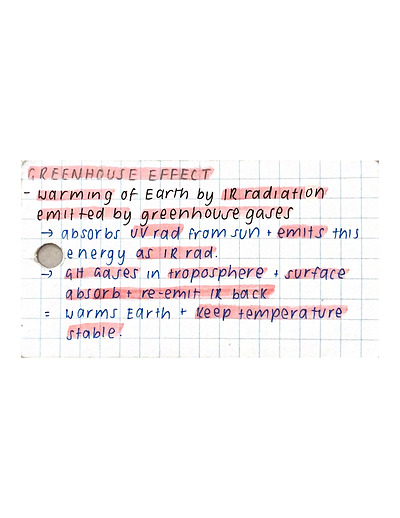 GREENHOUSE EFFECT
- warming of Earth by IR radiation
emitted by greenhouse gases
→ absorbs UV rad from sun + emits this
energy as IR rad.
→ GH gases in troposphere + surface
absorb + re-emit IR back
= warms Earth + keep temperature
stable.